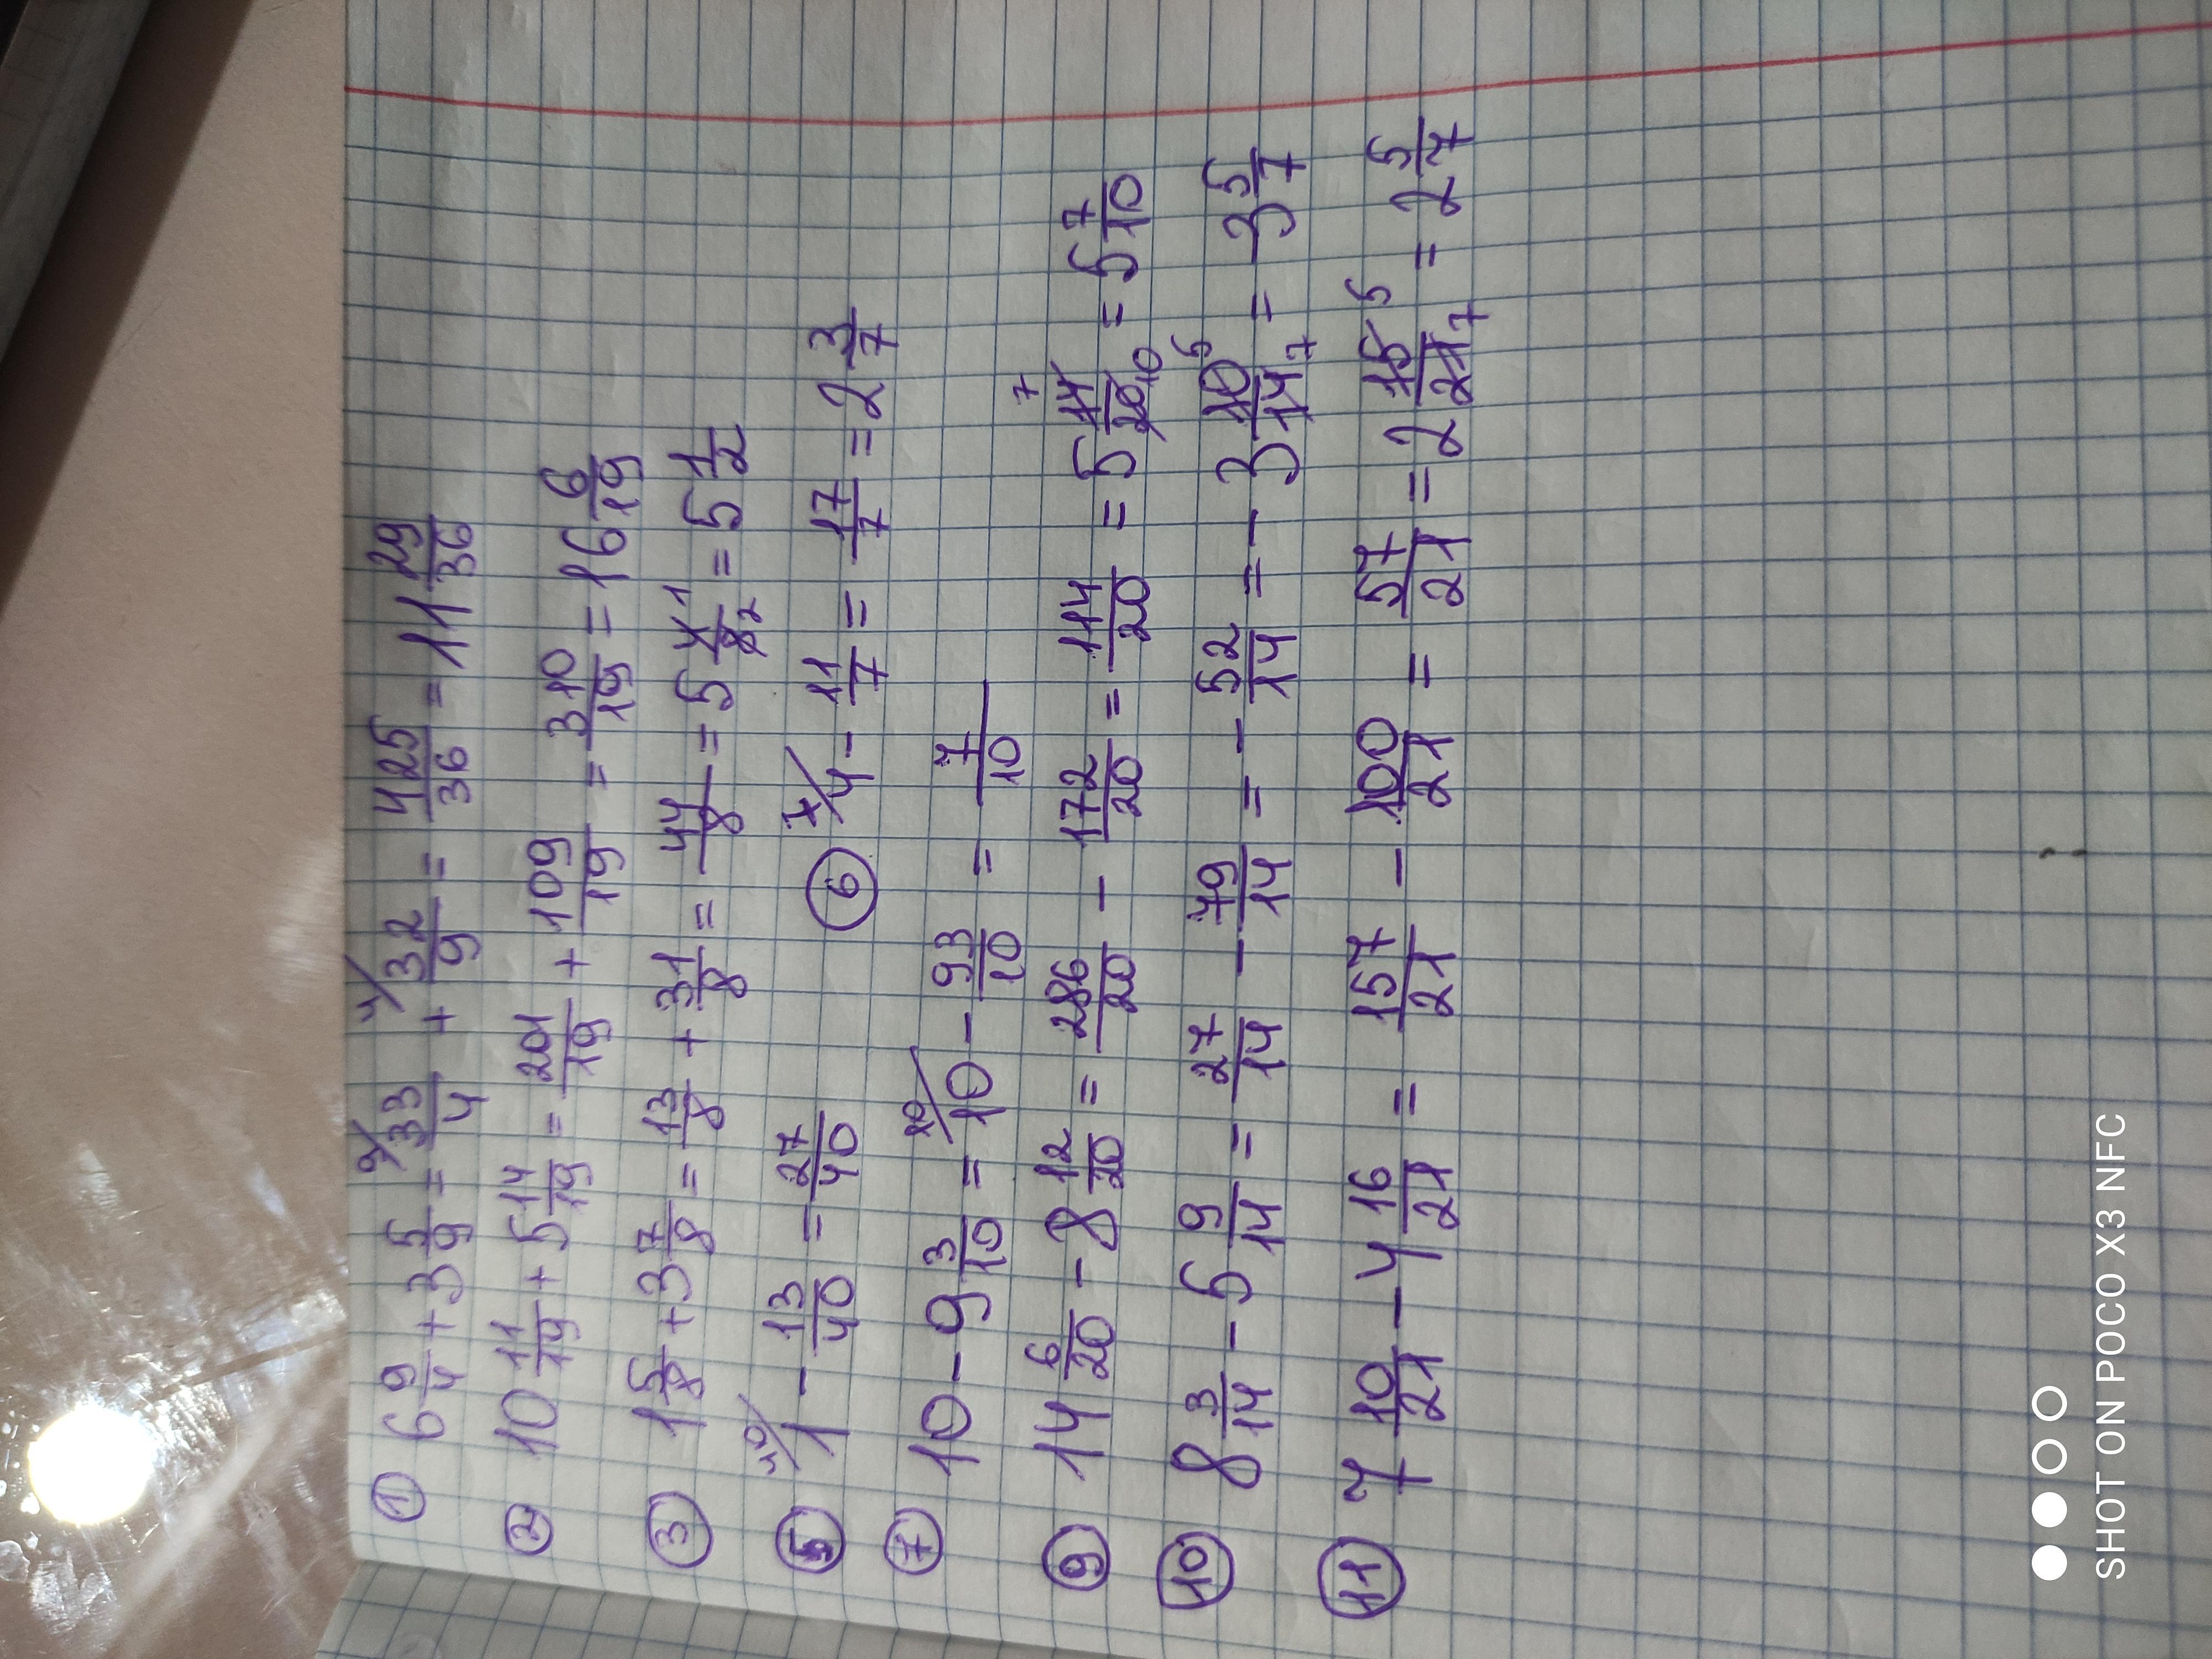 ① 6 9/4 + 3 5/9 = 9/ 33/4 + 4/ 32/9 = 425/36 = 11 29/36
② 10 11/19 + 5 14/19 = 201/19 + 109/19 = 310/19 = 16 6/19
③ 1 5/8 + 3 7/8 = 13/8 + 31/8 = 44/8 = 5 4/8 1/2 = 5 1/2
⑤ 40/ 1 - 13/40 = 27/40 ⑥ 7/ 4 - 11/7 = 17/7 = 2 3/7
⑦ 10 - 9 3/10 = 10/ 10 - 93/10 = 7/10
⑨ 14 6/20 - 8 12/20 = 286/20 - 172/20 = 114/20 = 5 14/20 7/10 = 5 7/10
⑩ 8 3/14 - 5 9/14 = 27/14 - 79/14 = - 52/14 = - 3 10/14 5/7 = 3 5/7
⑪ 7 10/21 - 4 16/21 = 157/21 - 100/21 = 57/21 = 2 15/21 5/7 = 2 5/7
SHOT ON POCO X3 NFC